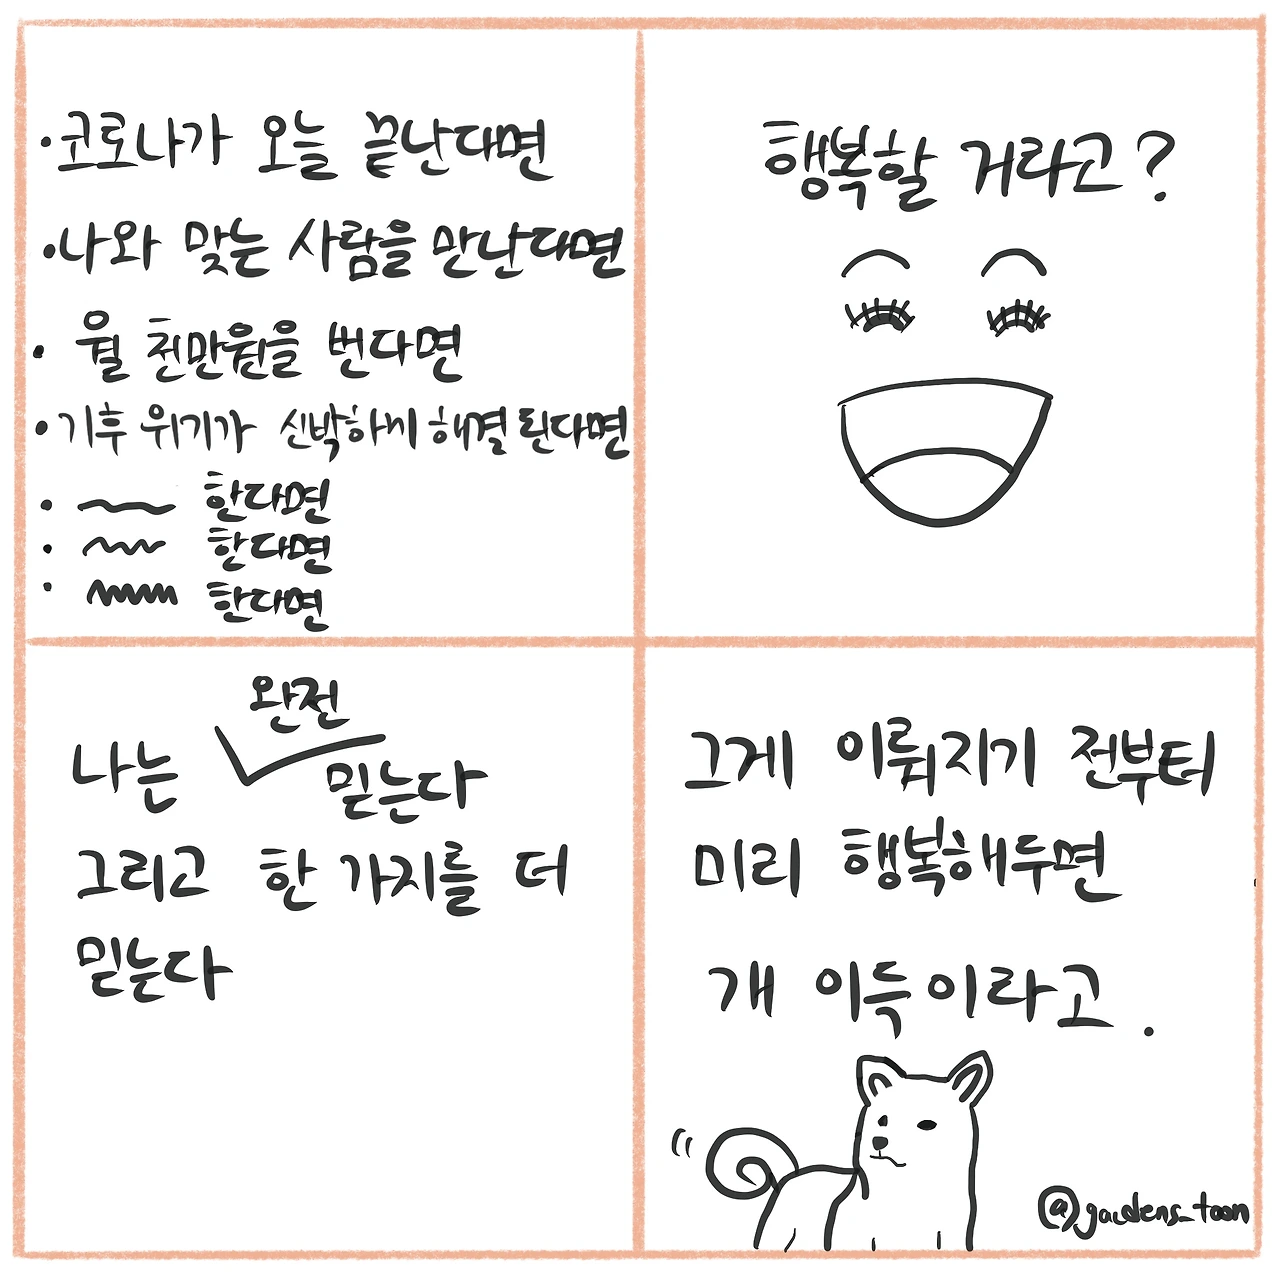 ·코로나가 오늘 끝난다면
·나와 맞는 사람을 만난다면
· 월 천만원을 번다면
·기후 위기가 신박하게 해결된다면
· 한다면
· 한다면
· 한다면
행복할 거라고?
완전
나는 믿는다
그리고 한 가지를 더
믿는다
그게 이뤄지기 전부터
미리 행복해두면
개 이득이라고.
@gardens_toon